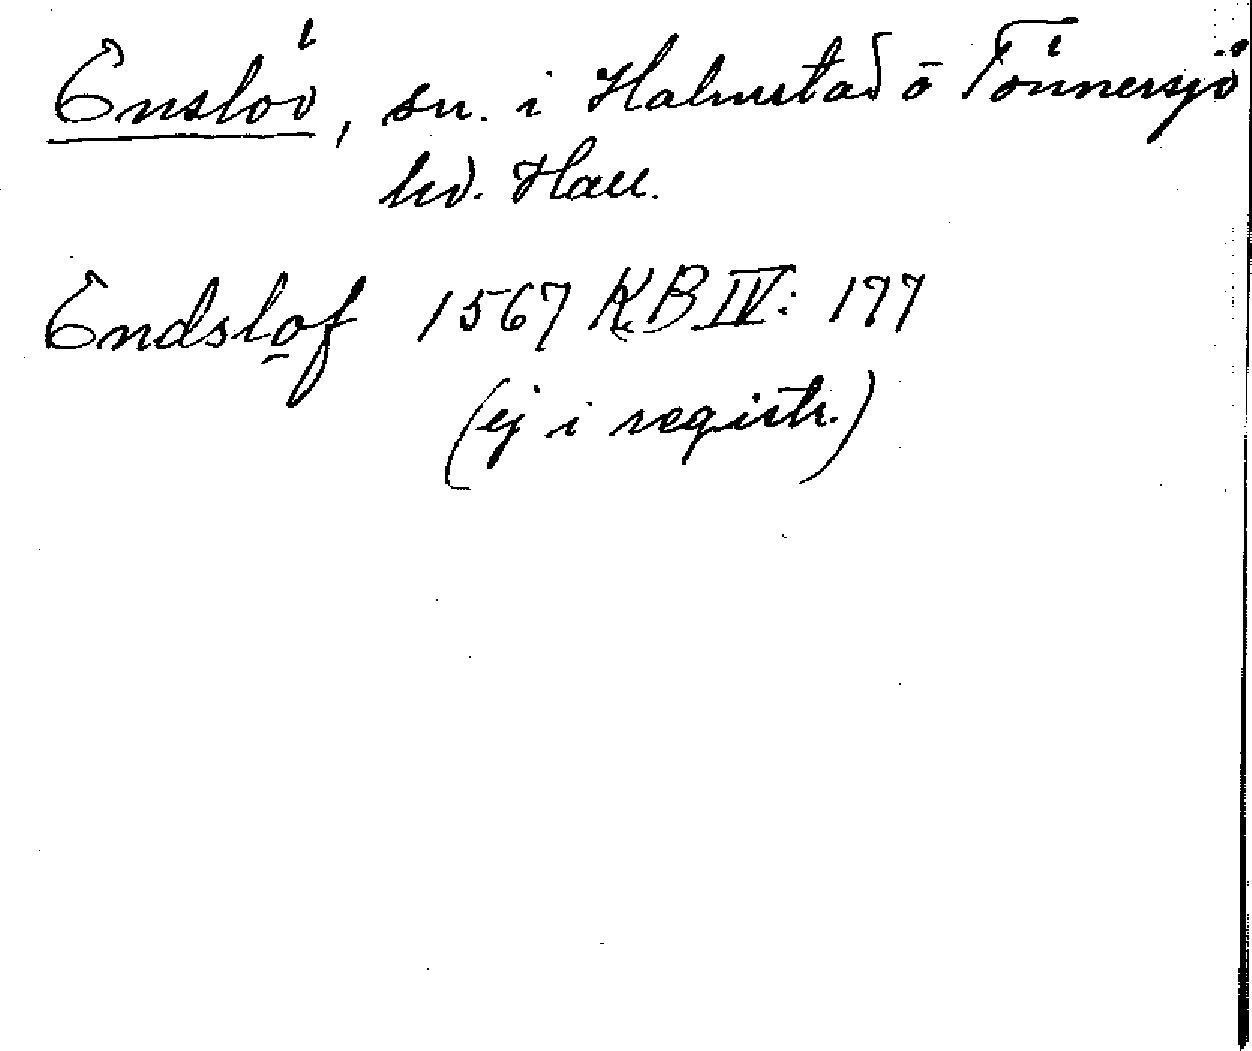 Enslöv, sn. i Halmstad o Tönnersjö
hd. Hall.
Endslof 1567 KB IV: 177
(ej i registr.)